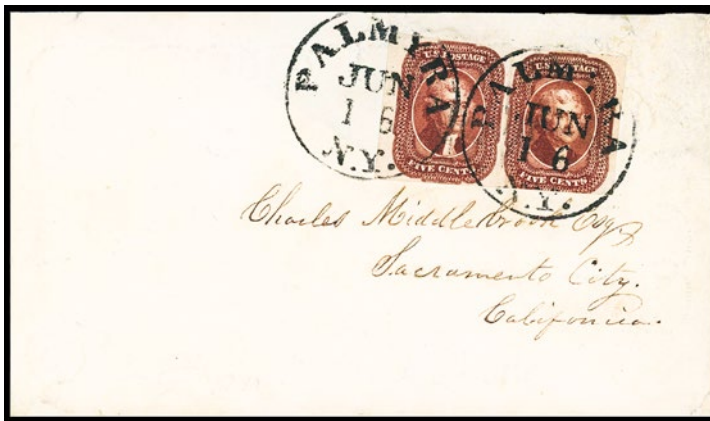 PALMYRA
JUN
16
N.Y.
U.S. POSTAGE
FIVE CENTS
PALMYRA
JUN
16
N.Y.
FIVE CENTS
Charles Middlebrook Esqr
Sacramento City.
California.